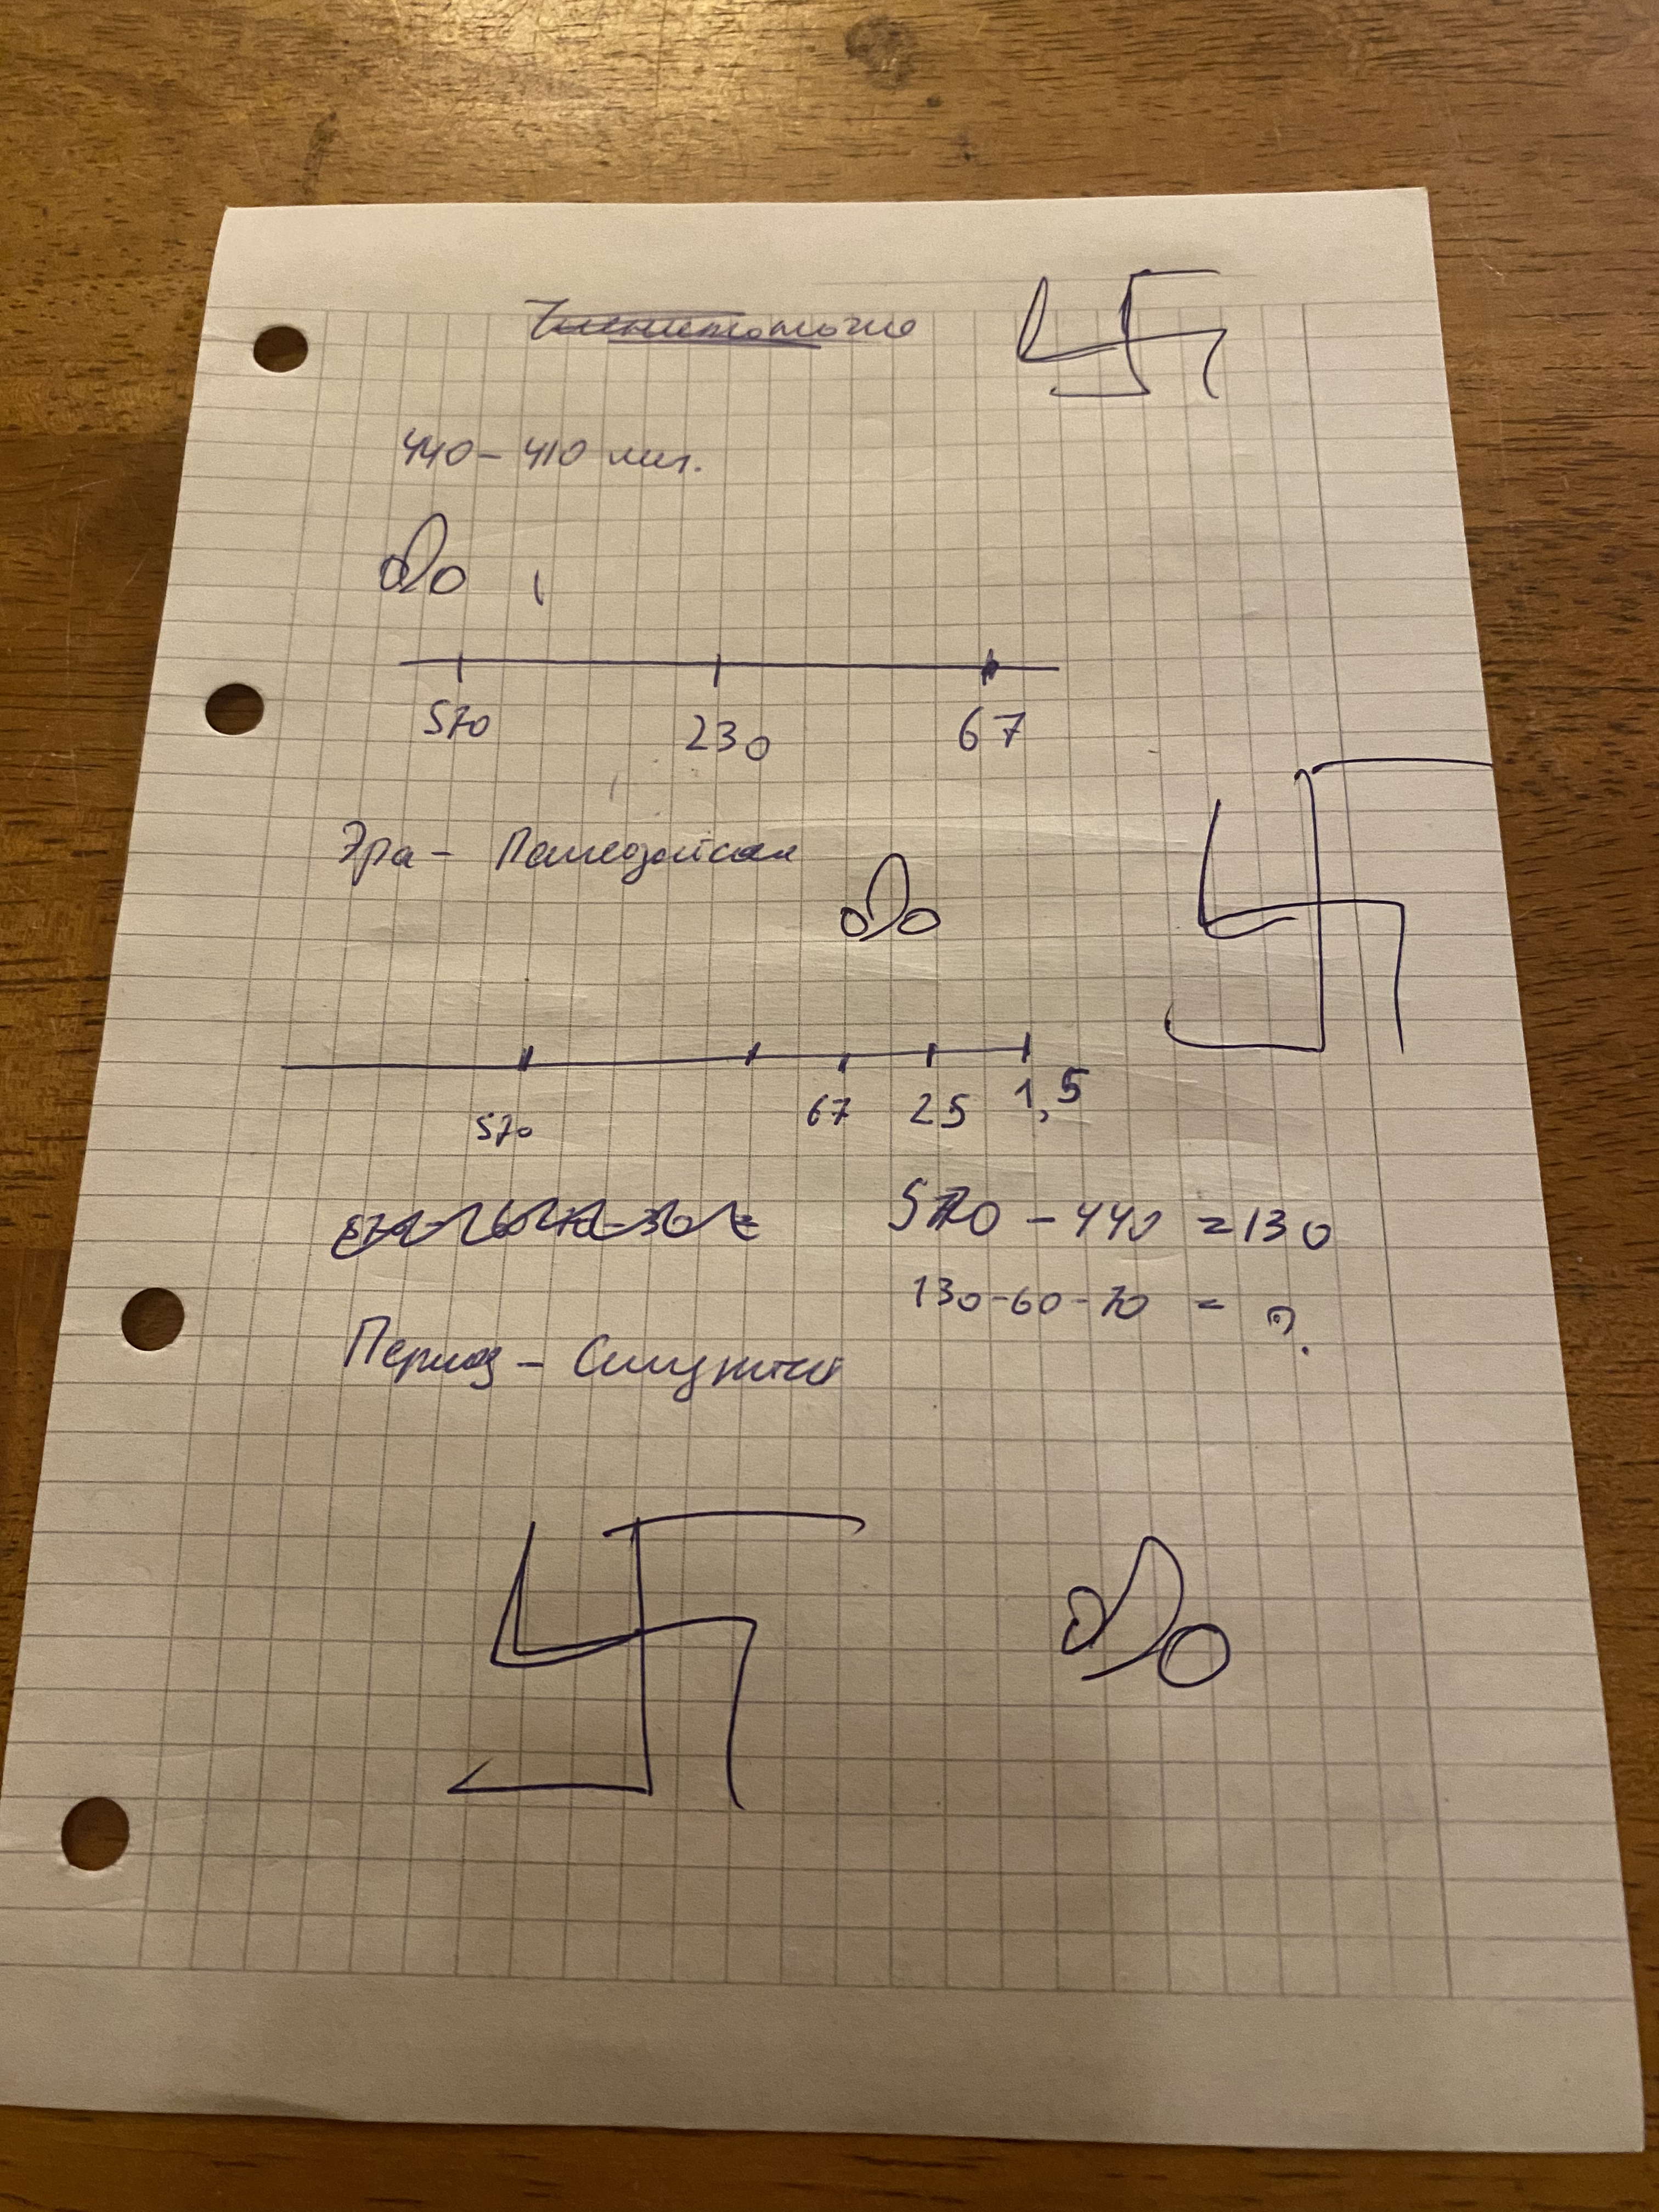 440 – 410 мил.
570 230 67
Эра – Палеозойская
570 67 25 1,5
570 – 440 = 130
130 - 60 - 70 = ?
Период –